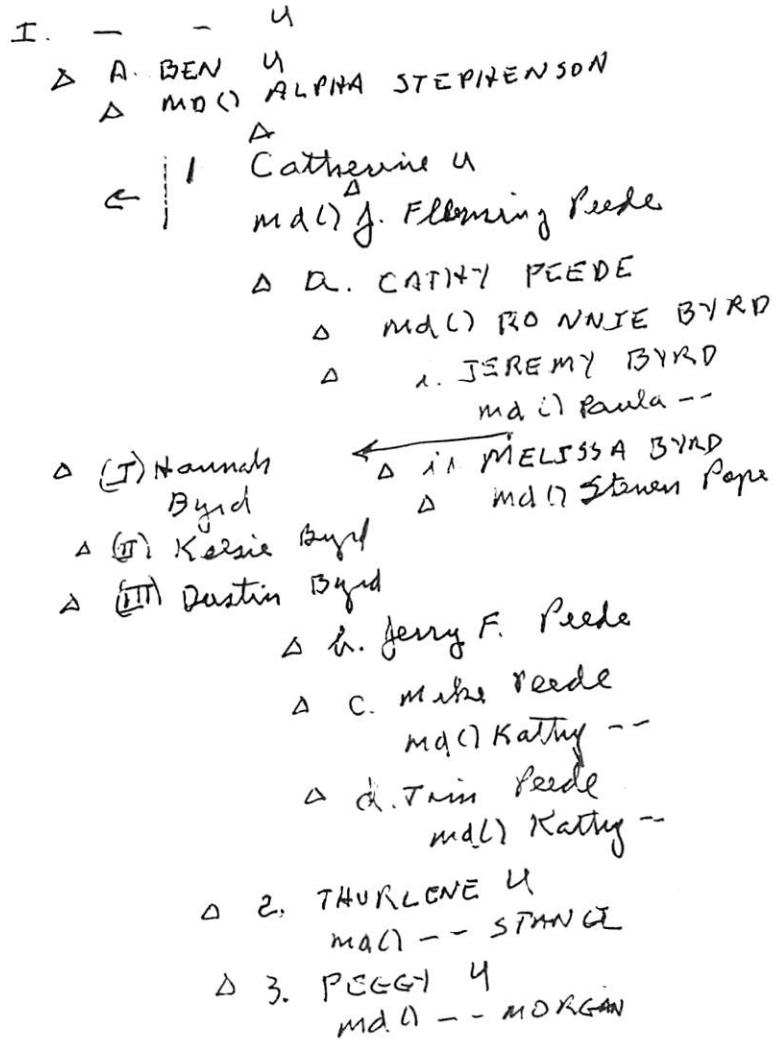 I. – – U
Δ A. BEN U
Δ MD() ALPHA STEPHENSON
Δ
1 Catherine U
Δ
md() J. Flemming Peede
Δ a. CATHY PEEDE
Δ md() RONNIE BYRD
Δ i. JEREMY BYRD
md() Paula --
Δ ii MELISSA BYRD
Δ md() Steven Pope
Δ (I) Hannah
Byrd
Δ (II) Kelsie Byrd
Δ (III) Dustin Byrd
Δ b. Jerry F. Peede
Δ c. Mike Peede
md() Kathy --
Δ d. Tim Peede
md() Kathy --
Δ 2. THURLENE U
md() --
Δ 3. PEGGY U
md() -- MORGAN